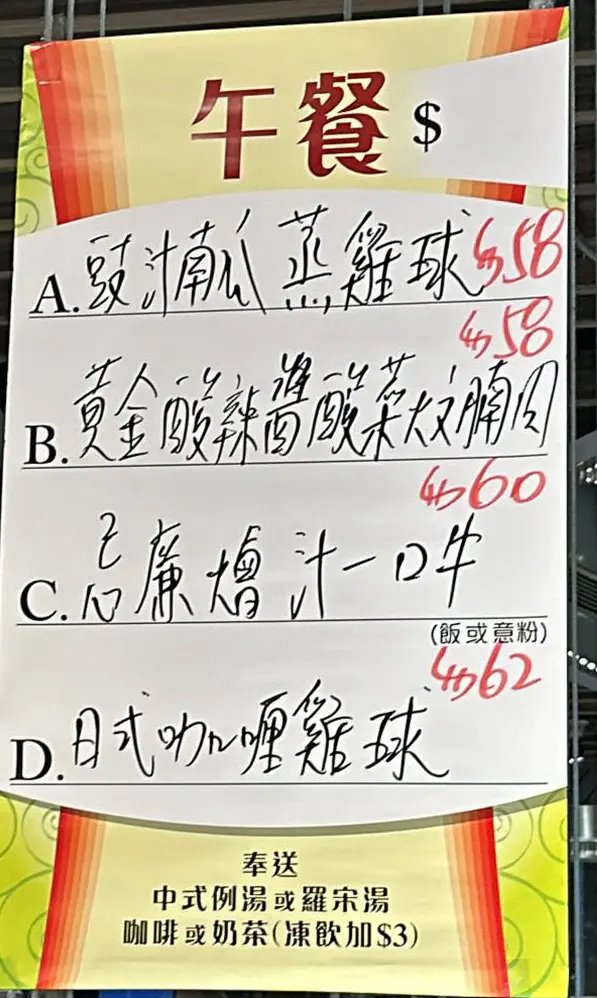 午餐 $
A. 豉汁南瓜蒸雞球 $58
$58
B. 黃金酸辣醬酸菜炆腩肉
$60
C. 忌廉燴汁一口牛
(飯或意粉)
$62
D. 日式咖喱雞球
奉送
中式例湯或羅宋湯
咖啡或奶茶(凍飲加$3)